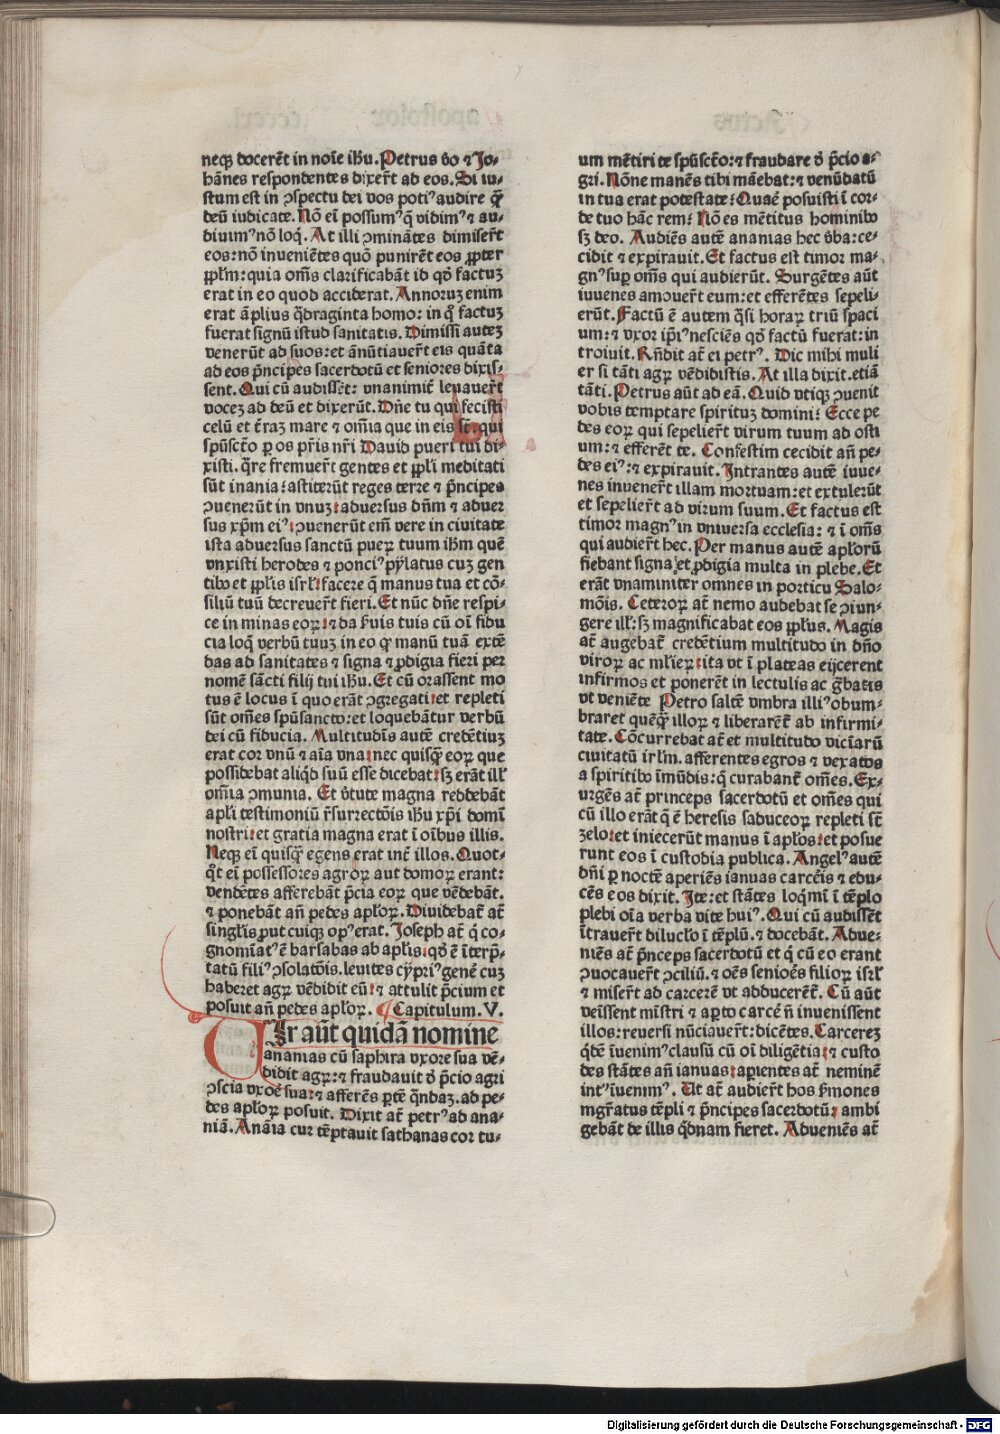 neqꝫ docerēt in noīe ihū. Petrus v̊o ⁊ Jo-
hānes respondentes dixer̄t ad eos. Si iu-
stum est in ↄspectu dei vos potiꝰ audire q̄ꝫ
deū iudicate. Nō eī possumꝰ q̄ vidimꝰ ⁊ au-
diuimꝰ nō loq̇. At illi ↄminātes dimiser̄t
eos: nō inueniētes quō punirēt eos ꝓpter
ꝓp̄lm: quia om̄s clarificabāt id qd̓ factuꝫ
erat in eo quod acciderat. Annoruꝫ enim
erat āplius q̄draginta homo: in q̄ factuꝫ
fuerat signū istud sanitatis. Dimissi auteꝫ
venerūt ad suos: et ānūtiauer̄t eis quāta
ad eos p̄ncipes sacerdotū et seniores dixis-
sent. Qui cū audissēt: vnanimit̄ leuauer̄t
voceꝫ ad deū et dixerūt. Dn̄e tu qui fecisti
celū et t̄raꝫ mare ⁊ om̄ia que in eis st̄: qui
sp̄uscto ꝑ os pr̄is nr̄i Dauid pueri tui di-
xisti. q̄re fremuer̄t gentes et ꝓp̄li meditati
sūt inania: astiterūt reges terre ⁊ p̄ncipes
ↄuenerūt in vnuꝫ: aduersus dn̄m ⁊ aduer
sus xp̄m eiꝰ: ↄuenerūt em̄ vere in ciuitate
ista aduersus sanctū pueꝝ tuum ihm̄ quē
vnxisti herodes ⁊ ponciꝰ pylatus cuꝫ gen
tibꝰ et ꝓp̄lis isrl̄: facere q̄ manus tua et cō-
siliū tuū decreuer̄t fieri. Et nūc dn̄e respi-
ce in minas eoꝝ: ⁊ da ẜuis tuis cū oī fidu
cia loq̇ verbū tuuꝫ in eo qꝫ manū tuā extē
das ad sanitates ⁊ signa ⁊ ꝓdigia fieri per
nomē sācti filij tui ihū. Et cū orassent mo
tus ē locus ī quo erāt ↄgregati: et repleti
sūt om̄es sp̄usancto: et loquebāntur verbū
dei cū fiducia. Multitudīs autē credētiuꝫ
erat cor vnū ⁊ aīa vna: nec quisq̄ꝫ eoꝝ que
possidebat aliqd̓ suū esse dicebat: sꝫ erāt ill̄
om̄ia ↄmunia. Et v̓tute magna reddebāt
apl̄i testimoniū r̄surrectōis ihū xp̄i domī
nostri: et gratia magna erat ī oībus illis.
Neqꝫ eī quisq̄ꝫ egens erat int̄ illos. Quot-
q̇t eī possessores agroꝝ aut domoꝝ erant:
vendētes afferebāt p̄cia eoꝝ que vēdebāt.
⁊ ponebāt añ pedes apl̄oꝝ. Diuidebat̄ at̄
singl̄is ꝓut cuiqꝫ opꝰ erat. Joseph at̄ q̇ co-
gnomīatꝰ ē barsabas ab apl̄is: qd̓ ē īterp̄-
tatū filiꝰ ↄsolatōis. leuites cypriꝰ genē cuꝫ
haberet agꝝ vēdidit eū: ⁊ attulit p̄cium et
posuit añ pedes apl̄oꝝ. ¶ Capitulum. V.
VIr aūt quidā nomine
ananias cū saphira vxore sua vē-
didit agꝝ: ⁊ fraudauit d̓ p̄cio agri
ↄscia vxōe sua: ⁊ afferēs ꝑtē q̄ndaꝫ. ad pe-
des apl̄oꝝ posuit. Dixit at̄ petrꝰ ad ana-
niā. Anāia cur tēptauit sathanas cor tu-
um mētiri te sp̄uscto: ⁊ fraudare d̓ p̄cio a-
gri. Nōne manēs tibi māebat: ⁊ venūdatū
in tua erat potestate: Quaē posuisti ī cor-
de tuo hāc rem: Nō es mētitus hominibꝰ
sꝫ deo. Audiēs autē ananias hec v̓ba: ce-
cidit ⁊ expirauit. Et factus est timor ma-
gnꝰ suꝑ om̄s qui audierūt. Surgētes aūt
iuuenes amouer̄t eum: et efferētes sepeli-
erūt. Factū ē autem q̄si horaꝝ triū spaci
um: ⁊ vxor ip̄iꝰ nesciēs qd̓ factū fuerat: in
troiuit. Rn̄dit at̄ ei petrꝰ. Dic mihi muli
er si tāti agꝝ vēdidistis. At illa dixit. etiā
tāti. Petrus aūt ad eā. Quid vtiqꝫ ↄuenit
vobis temptare spirituꝫ domini: Ecce pe
des eoꝝ qui sepelier̄t virum tuum ad osti
um: ⁊ efferēt te. Confestim cecidit añ pe-
des eiꝰ: ⁊ expirauit. Intrantes autē iuue-
nes inuener̄t illam mortuam: et extulerūt
et sepelier̄t ad virum suum. Et factus est
timor magnꝰ in vniuersa ecclesia: ⁊ ī om̄s
qui audier̄t hec. Per manus autē apl̄orū
fiebant signa et ꝓdigia multa in plebe. Et
erāt vnaminiter omnes in porticu Salo-
mōis. Ceteroꝝ at̄ nemo audebat se ↄiun-
gere ill̄: sꝫ magnificabat eos ꝓp̄lus. Magis
at̄ augebat̄ credētium multitudo in dn̄o
viroꝝ ac ml̓ieꝝ: ita vt ī plateas eijcerent
infirmos et ponerēt in lectulis ac g̊batis
vt veniēte Petro saltē vmbra illiꝰ obum-
braret quēq̄ꝫ illoꝝ ⁊ liberarēt̄ ab infirmi-
tate. Cōcurrebat at̄ et multitudo viciarū
ciuitatū irl̄m. afferentes egros ⁊ vexatos
a spiritibꝰ īmūdis: q̇ curabant̄ om̄es. Ex-
urgēs at̄ princeps sacerdotū et om̄es qui
cū illo erāt q̄ ē heresis saduceoꝝ repleti st̄
zelo: et iniecerūt manus ī apl̄os: et posue
runt eos ī custodia publica. Angelꝰ autē
dn̄i ꝑ noctē aperiēs ianuas carcēis ⁊ edu-
cēs eos dixit. Ite: et stātes loq̇mī ī tēplo
plebi oīa verba vite huiꝰ. Qui cū audissēt
ītrauer̄t dilucl̄o ī tēplū. ⁊ docebāt. Adue-
niēs at̄ p̄nceps sacerdotū et q̇ cū eo erant
ↄuocauer̄t ↄciliū. ⁊ oēs senioēs filioꝝ isrl̄
⁊ miser̄t ad carcerē vt adducerēt̄. Cū aūt
veīssent mīstri ⁊ aꝑto carcē ñ inuenissent
illos: reuersi nūciauer̄t: dicētes. Carcereꝫ
q̇dē īuenimꝰ clausū cū oī diligētia: ⁊ custo
des stātes añ ianuas: aꝑientes at̄ neminē
intꝰ īuenimꝰ. Ut at̄ audier̄t hos ẜmones
mgr̄atus tēpli ⁊ p̄ncipes sacerdotū: ambi
gebāt de illis q̇dnam fieret. Adueniēs at̄
Digitalisierung gefördert durch die Deutsche Forschungsgemeinschaft - DFG